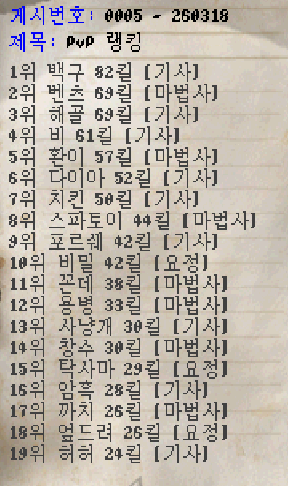 게시번호: 0005 - 260318
제목: PvP 랭킹
1위 백구 82킬 [기사]
2위 벤츠 69킬 [마법사]
3위 해골 69킬 [기사]
4위 비 61킬 [기사]
5위 환이 57킬 [마법사]
6위 다이아 52킬 [기사]
7위 치킨 50킬 [기사]
8위 스파토이 44킬 [마법사]
9위 포르쉐 42킬 [기사]
10위 비밀 42킬 [요정]
11위 꼰데 38킬 [마법사]
12위 용병 33킬 [마법사]
13위 사냥개 30킬 [기사]
14위 창수 30킬 [마법사]
15위 탁사마 29킬 [요정]
16위 암흑 28킬 [기사]
17위 까치 26킬 [마법사]
18위 엎드려 26킬 [요정]
19위 허허 24킬 [기사]